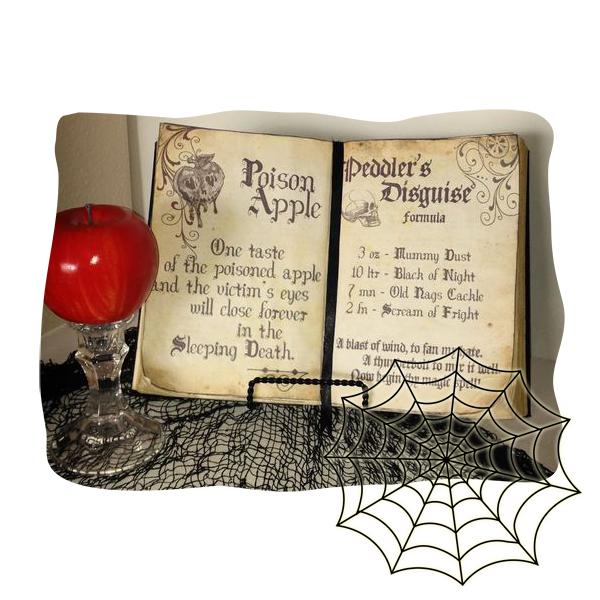 Poison
Apple
One taste
of the poisoned apple
and the victim's eyes
will close forever
in the
Sleeping Death.
Peddler's
Disguise
formula
3 oz - Mummy Dust
10 ltr - Black of Night
7 mn - Old Hags Cackle
2 fn - Scream of Fright
A blast of wind, to fan my hate.
A thunderbolt to mix it well.
Now begin thy magic spell!